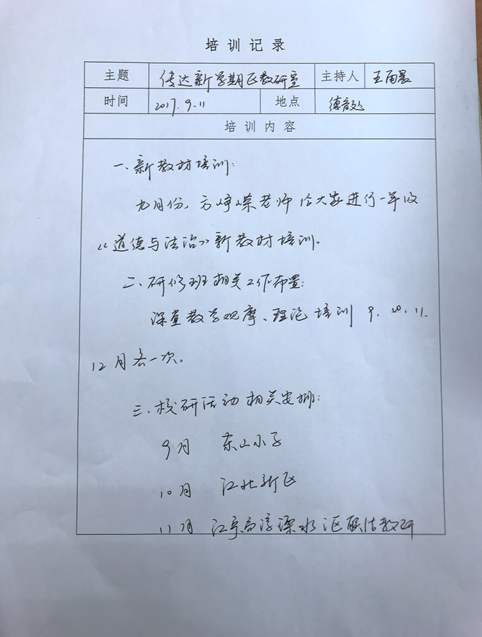 培训记录
主题 传达新学期区教研室 主持人 王雨晨
时间 2017.9.11 地点 德育处
培训内容
一、新教材培训：
九月份，方峥嵘老师给大家进行一年级
《道德与法治》新教材培训。
二、研修班相关工作布置：
课堂教学观摩、理论培训 9.10.11.
12月各一次。
三、校研活动相关安排：
9月 东山小学
10月 江北新区
11月 江宁高淳溧水区联法教研